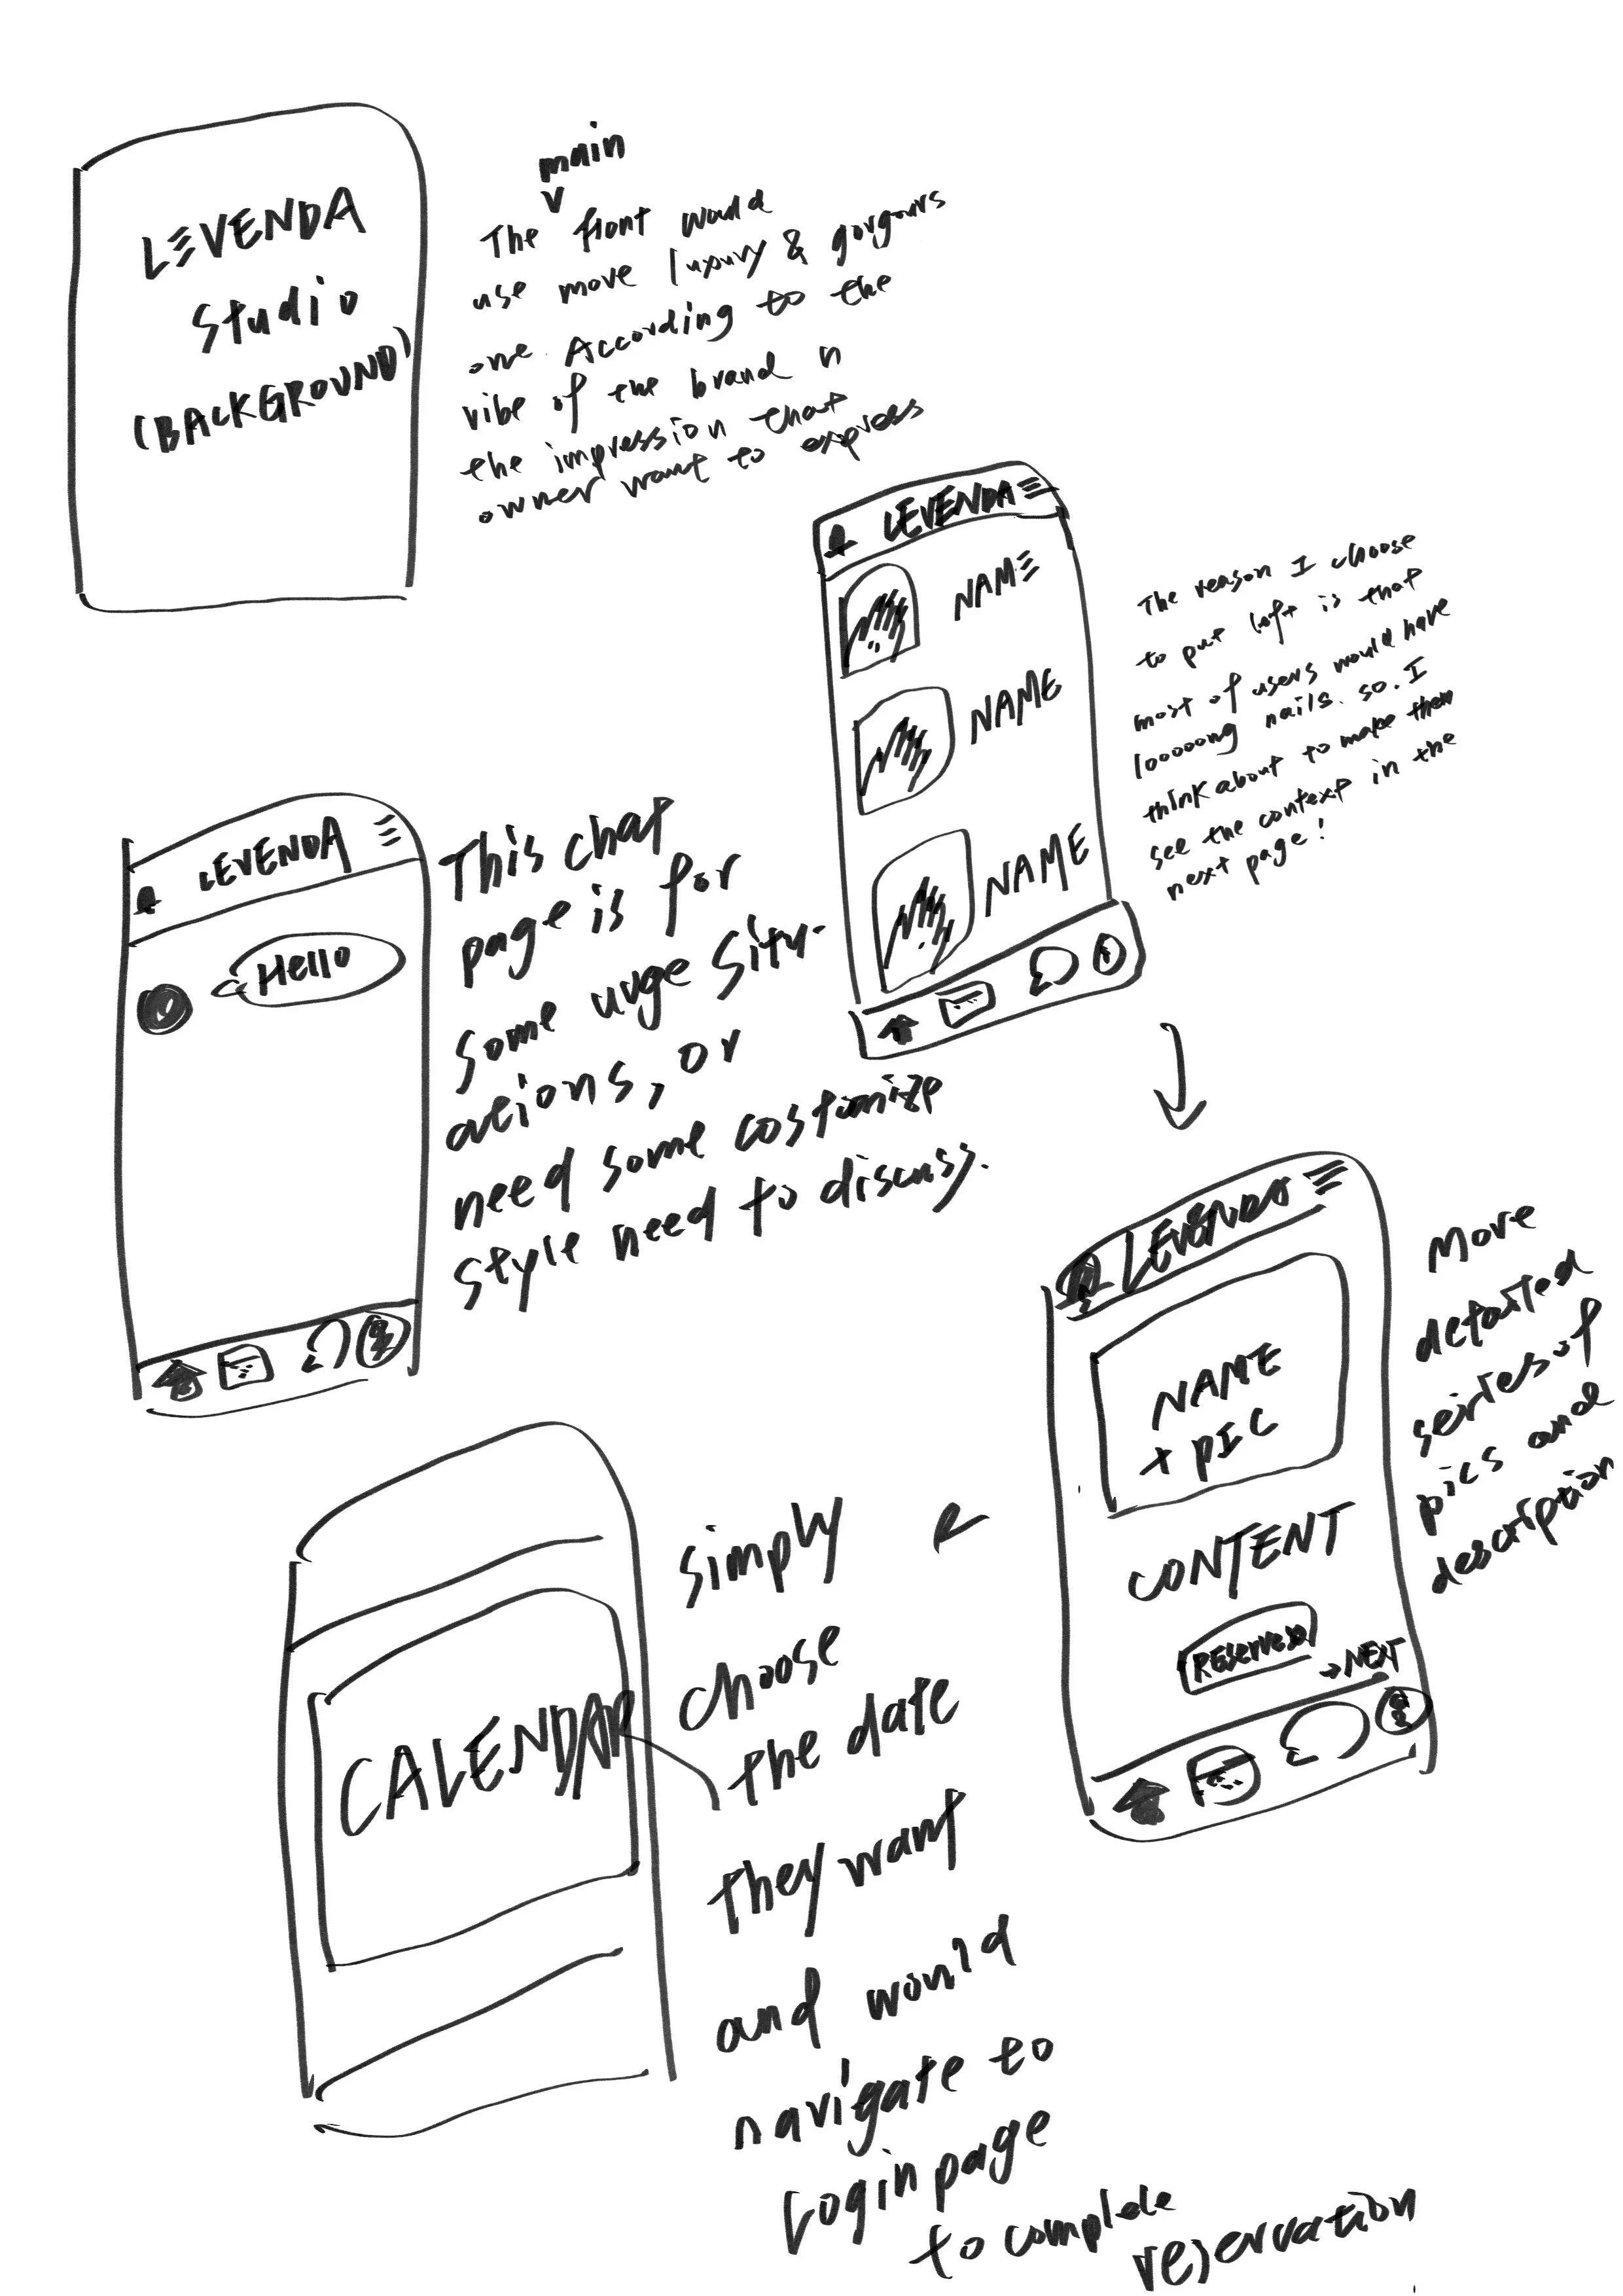 LEVENDA
studio
(BACKGROUND)
main
v
The front would
use more luxury & gorgours
one. According to the
vibe of the brand n
the impression that
owner want to express
LEVENDA
NAME
NAME
NAME
The reason I choose
to put left is that
most of users would have
looooong nails. so. I
think about to make them
see the context in the
next page!
LEVENDA
Hello
This chat
page is for
some urge situ-
ations, or
need some costumize
style need to discuss.
LEVENDA
NAME
+ PIC
CONTENT
RESERVED
→ NEXT
More
detailed
series of
pics and
description
CALENDAR
simply
choose
the date
they want
and would
navigate to
Login page
to complete
reservation